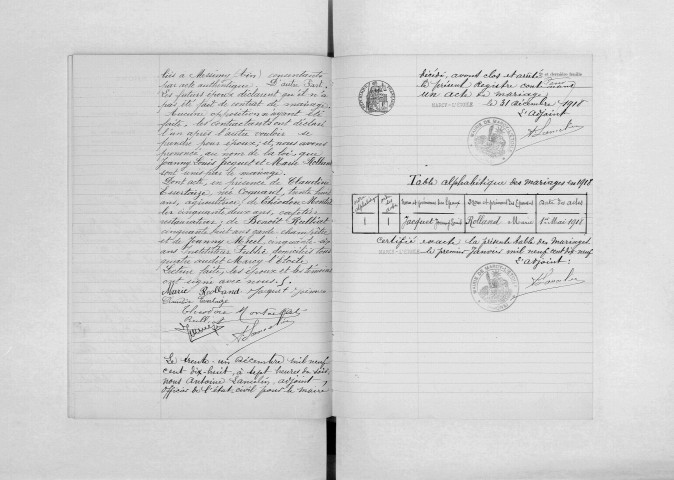 liés à Messimy (Ain) consentants
par acte authentique. D'autre Part.
Les futurs époux déclarent qu'il n'a
pas été fait de contrat de mariage.
Aucune opposition n'ayant été
faite, les contractants ont déclaré
l'un après l'autre vouloir se
prendre pour époux; et, nous avons
prononcé, au nom de la loi, que
Joanny Louis Jacquet et Marie Rolland
sont unis par le mariage.
Dont acte, en présence de Claudine
née trente trois
ans, agricultrice; de Théodore
cinquante deux ans,
de Benoît
cinquante huit ans garde champêtre
et de Joanny cinquante six
ans Instituteur Public domiciliés tous
quatre audit Marcy l'Etoile.
Lecture faite, les époux et les témoins
ont signé avec nous.
Marie Rolland Jacquet
Claudine
Théodore
Le trente-un Décembre mil neuf
cent dix-huit, à sept heures du soir,
nous Antoine adjoint,
officier de l'état civil pour le maire
décédé, avons clos et arrêté
le présent Registre contenant
un acte de mariage,
MARCY-L'ÉTOILE le 31 décembre 1918
L'adjoint
Table alphabétique des mariages en 1918
Noms et prénoms des Epoux Noms et prénoms des Epouses Date des actes
1 1 Jacquet Joanny Louis Rolland Marie 1er Mai 1918
Certifié exact la présente table des mariages.
MARCY-L'ÉTOILE le premier Janvier mil neuf cent dix-neuf
L'adjoint: